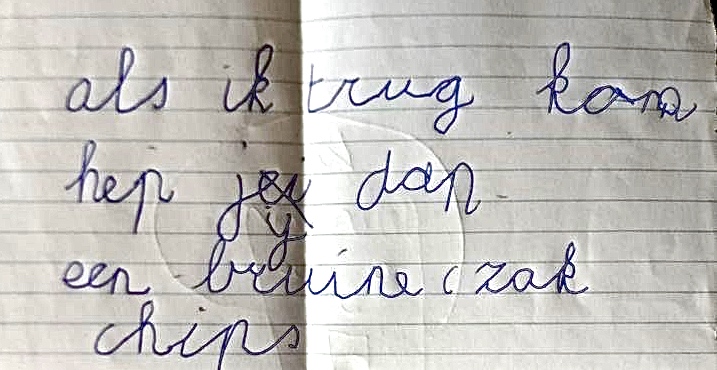 als ik trug kom
hep jij dan
een bruine zak
chips